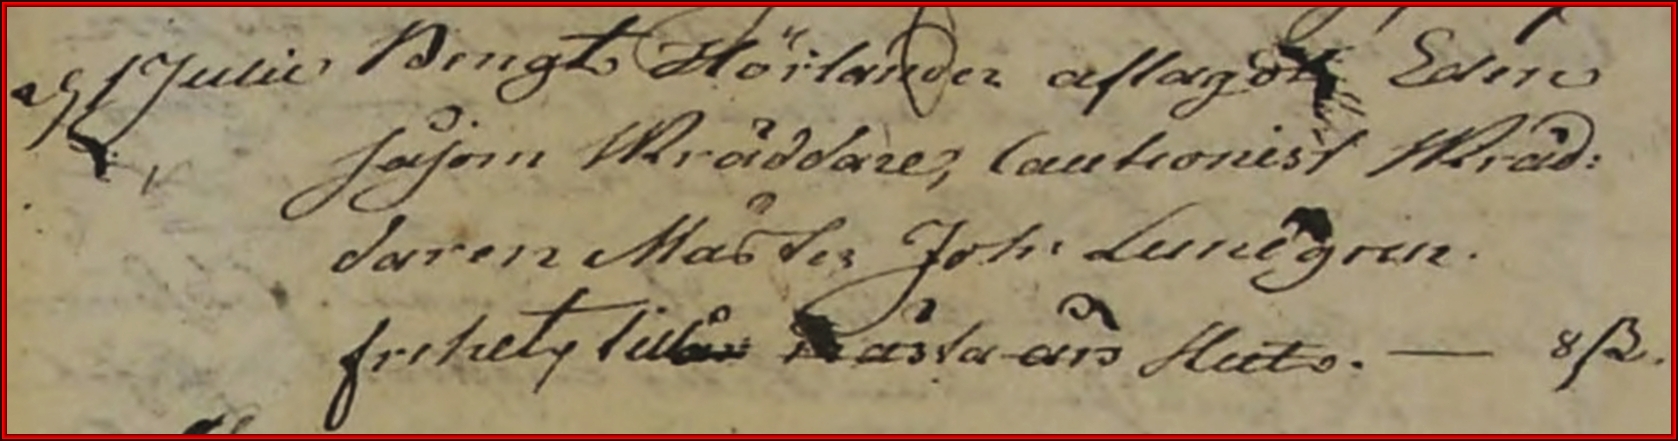 Julii Bengt Hörlander aflagdt Eden
såsom Skräddare, Cautionist Skräd:
daren Mäster Joh: Lundgren.
frihet, till nästa års Sluts. — 8 ß.